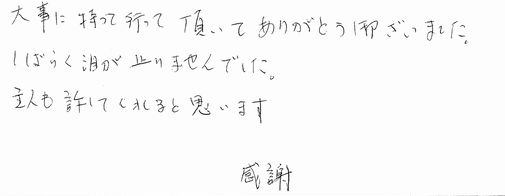 大事に持って行って頂いてありがとう御ざいました。
しばらく泪が止りませんでした。
主人も許してくれると思います
感謝